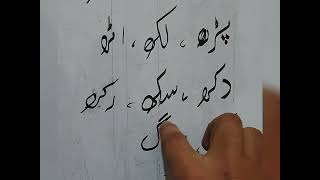 پڑھ ، لکھ ، اٹھ
دکھ ، سکھ ، رکھ